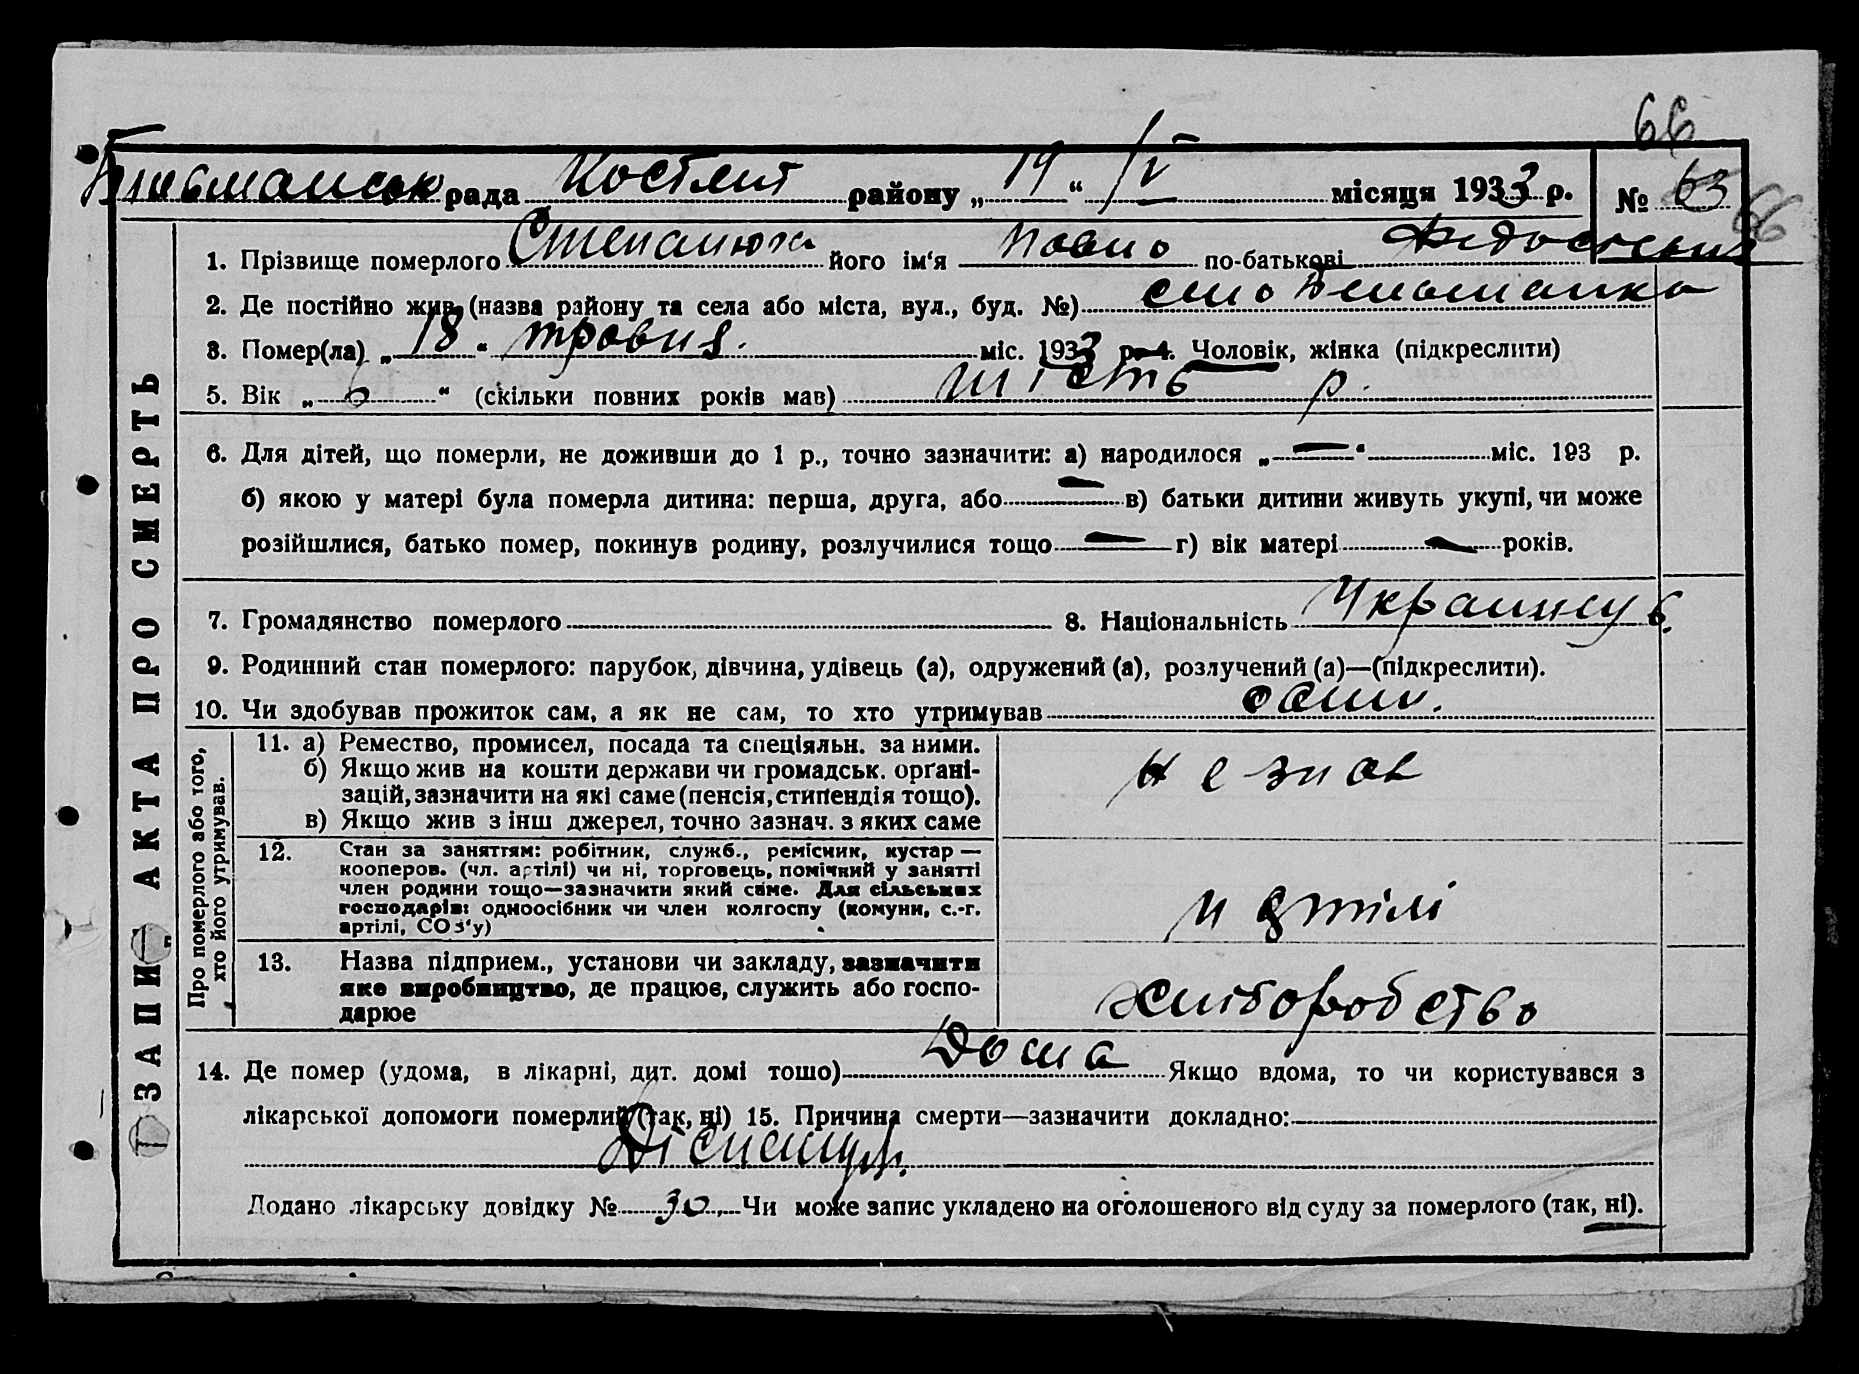 66
рада Костянт району „ 19 “ IV місяця 1933 р. № 63 66
1. Прізвище померлого Степанюха його ім'я Павло по-батькові
2. Де постійно жив, (назва району та села або міста, вул., буд. №) село
3. Помер(ла) „ 18 “ травня. міс. 1933 р. 4. Чоловік, жінка (підкреслити)
5. Вік „ 6 “ (скільки повних років мав) шість р.
6. Для дітей, що померли, не доживши до 1 р., точно зазначити: а) народилося „ — “ міс. 193 р.
б) якою у матері була померла дитина: перша, друга, або — в) батьки дитини живуть укупі, чи може
розійшлися, батько помер, покинув родину, розлучилися тощо — г) вік матері — років.
7. Громадянство померлого 8. Національність
9. Родинний стан померлого: парубок, дівчина, удівець (а), одружений (а), розлучений (а)—(підкреслити).
10. Чи здобував прожиток сам, а як не сам, то хто утримував
ЗАПИС АКТА ПРО СМЕРТЬ
Про померлого або того,
хто його утримував.
11. а) Ремество, промисел, посада та спеціяльн. за ними.
б) Якщо жив на кошти держави чи громадськ. орґані-
зацій, зазначити на які саме (пенсія, стипендія тощо).
в) Якщо жив з інш джерел, точно зазнач. з яких саме
12. Стан за заняттям: робітник, служб., ремісник, кустар —
кооперов. (чл. артілі) чи ні, торговець, помічний у занятті
член родини тощо—зазначити який саме. Для сільських
господарів: одноосібник чи член колгоспу (комуни, с.-г.
артілі, СОЗ'у)
13. Назва підприєм., установи чи закладу, зазначити
яке виробництво, де працює, служить або госпо-
дарюе
хліборобство
14. Де помер (удома, в лікарні, дит. домі тощо) Дома Якщо вдома, то чи користувався з
лікарської допомоги померлий (так, ні) 15. Причина смерти—зазначити докладно:
Додано лікарську довідку № 30 Чи може запис укладено на оголошеного від суду за померлого (так, ні).